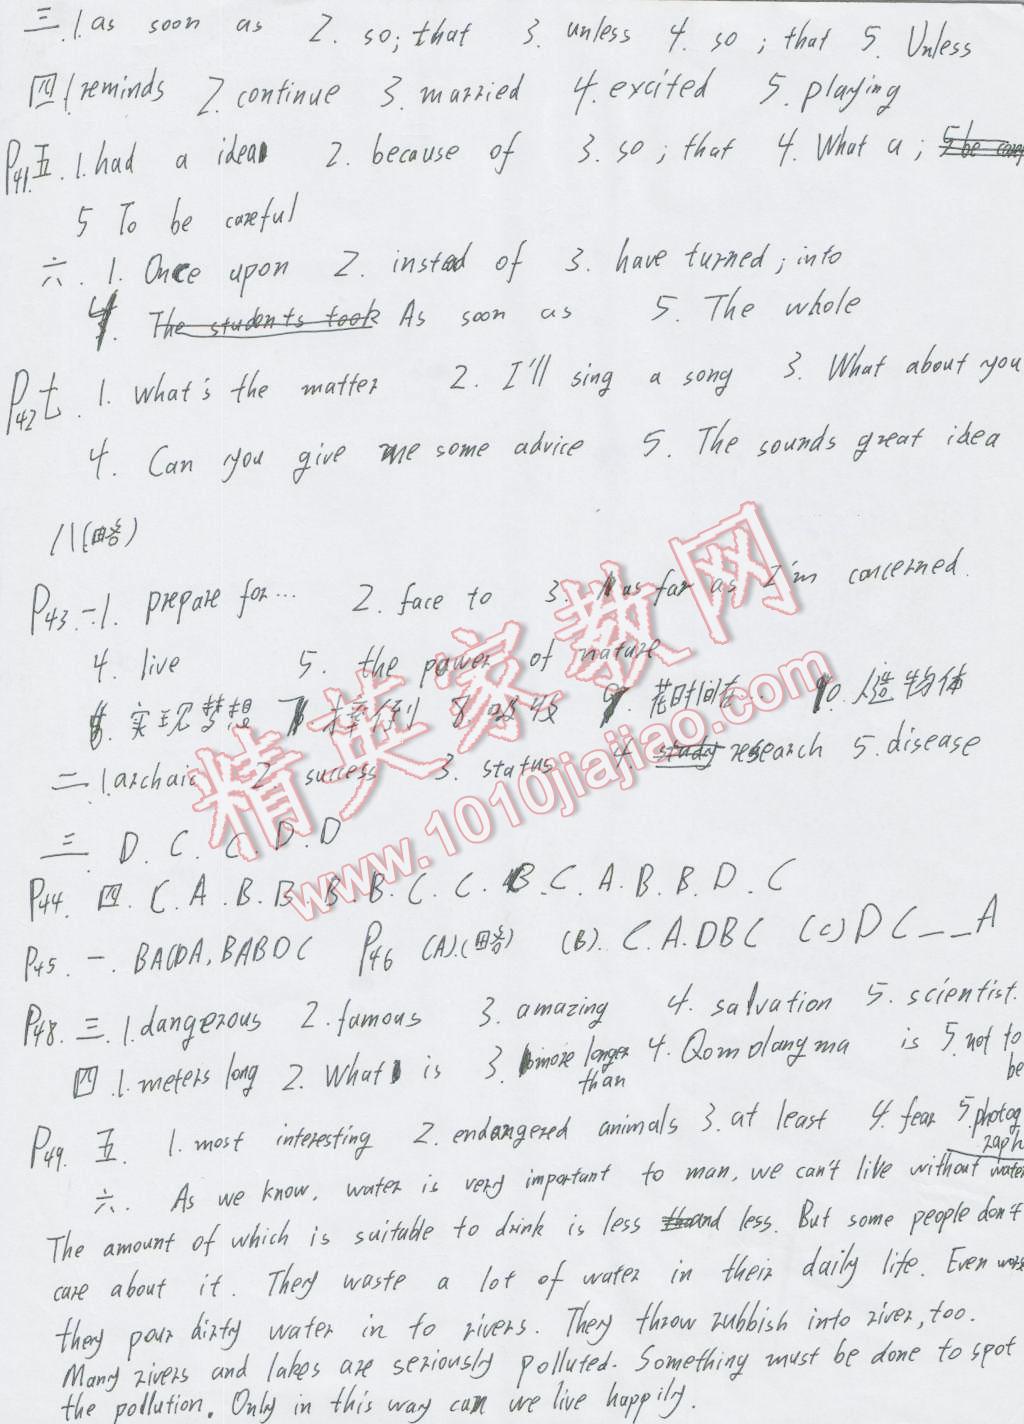 三.1. as soon as 2. so; that 3. unless 4. so ; that 5. Unless
四1 reminds 2. continue 3. married 4. excited 5. playing
P41. 五. 1. had a idea 2. because of 3. so ; that 4. What a ;
5 To be careful
六. 1. Once upon 2. instead of 3. have turned ; into
4. The students took As soon as 5. The whole
P42 七. 1. What's the matter 2. I'll sing a song 3. What about you
4. Can you give me some advice 5. The sounds great idea
八(略)
P43. 一.1. prepare for… 2. face to 3. as far as I'm concerned.
4. live 5. the power of nature
6. 实现梦想 7 8. 吸收 9. 花时间去 10. 人造物体
二.1. archaic 2. success 3. status 4. study research 5. disease
三 D. C. C. D. D
P44. 四. C. A. B. B. B. B. C. C. B. C. A. B. B. D. C
P45. 一. BACDA, BABDC P46 (A).(略) (B). C. A. DBC (C) D C _ _ A
P48. 三. 1. dangerous 2. famous 3. amazing 4. salvation 5. scientist.
四 .1. meters long 2. What is 3. more longer than 4. Qomolangma is 5. not to be
P49. 五. 1. most interesting 2. endangered animals 3. at least 4. fear 5. photograph
六. As we know, water is very important to man, we can't live without water
The amount of which is suitable to drink is less and less. But some people don't
care about it. They waste a lot of water in their daily life. Even worse
they pour dirty water in to rivers. They throw rubbish into river, too.
Many rivers and lakes are seriously polluted. Something must be done to spot
the pollution. Only in this way can we live happily.
精英家教网
www.1010jiajiao.com